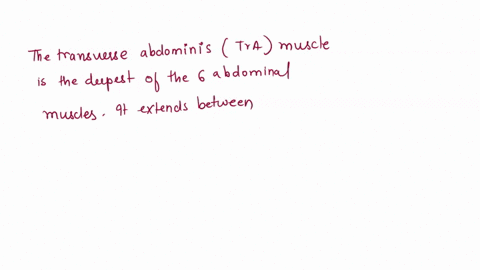 The transverse abdominis (TrA) muscle
is the deepest of the 6 abdominal
muscles. It extends between